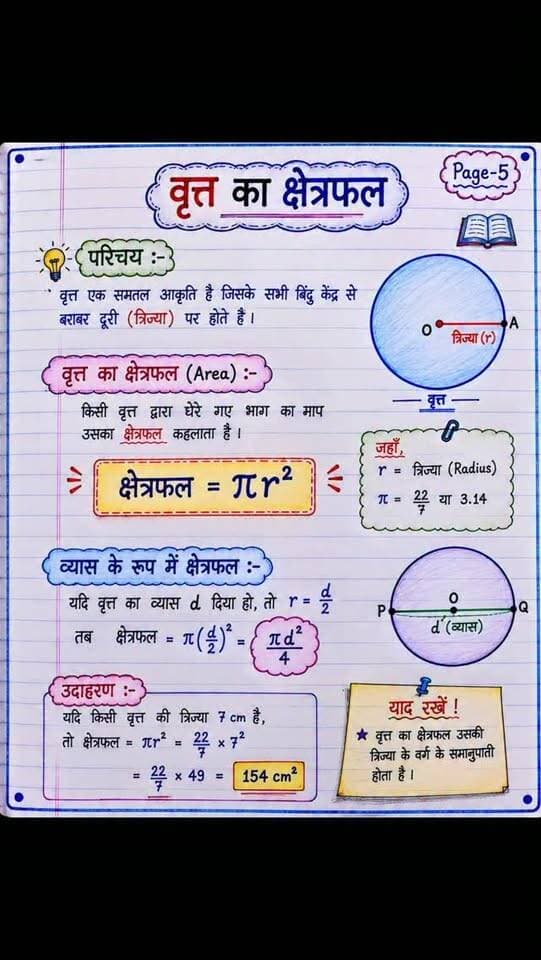 वृत्त का क्षेत्रफल
Page-5
परिचय :-
वृत्त एक समतल आकृति है जिसके सभी बिंदु केंद्र से
बराबर दूरी (त्रिज्या) पर होते हैं ।
O
A
त्रिज्या (r)
वृत्त
वृत्त का क्षेत्रफल (Area) :-
किसी वृत्त द्वारा घेरे गए भाग का माप
उसका क्षेत्रफल कहलाता है ।
क्षेत्रफल = πr²
जहाँ,
r = त्रिज्या (Radius)
π = 22/7 या 3.14
व्यास के रूप में क्षेत्रफल :-
यदि वृत्त का व्यास d दिया हो, तो r = d/2
तब क्षेत्रफल = π(d/2)² = πd²/4
P
O
Q
d (व्यास)
उदाहरण :-
यदि किसी वृत्त की त्रिज्या 7 cm है,
तो क्षेत्रफल = πr² = 22/7 × 7²
= 22/7 × 49 = 154 cm²
याद रखें !
★ वृत्त का क्षेत्रफल उसकी
त्रिज्या के वर्ग के समानुपाती
होता है ।